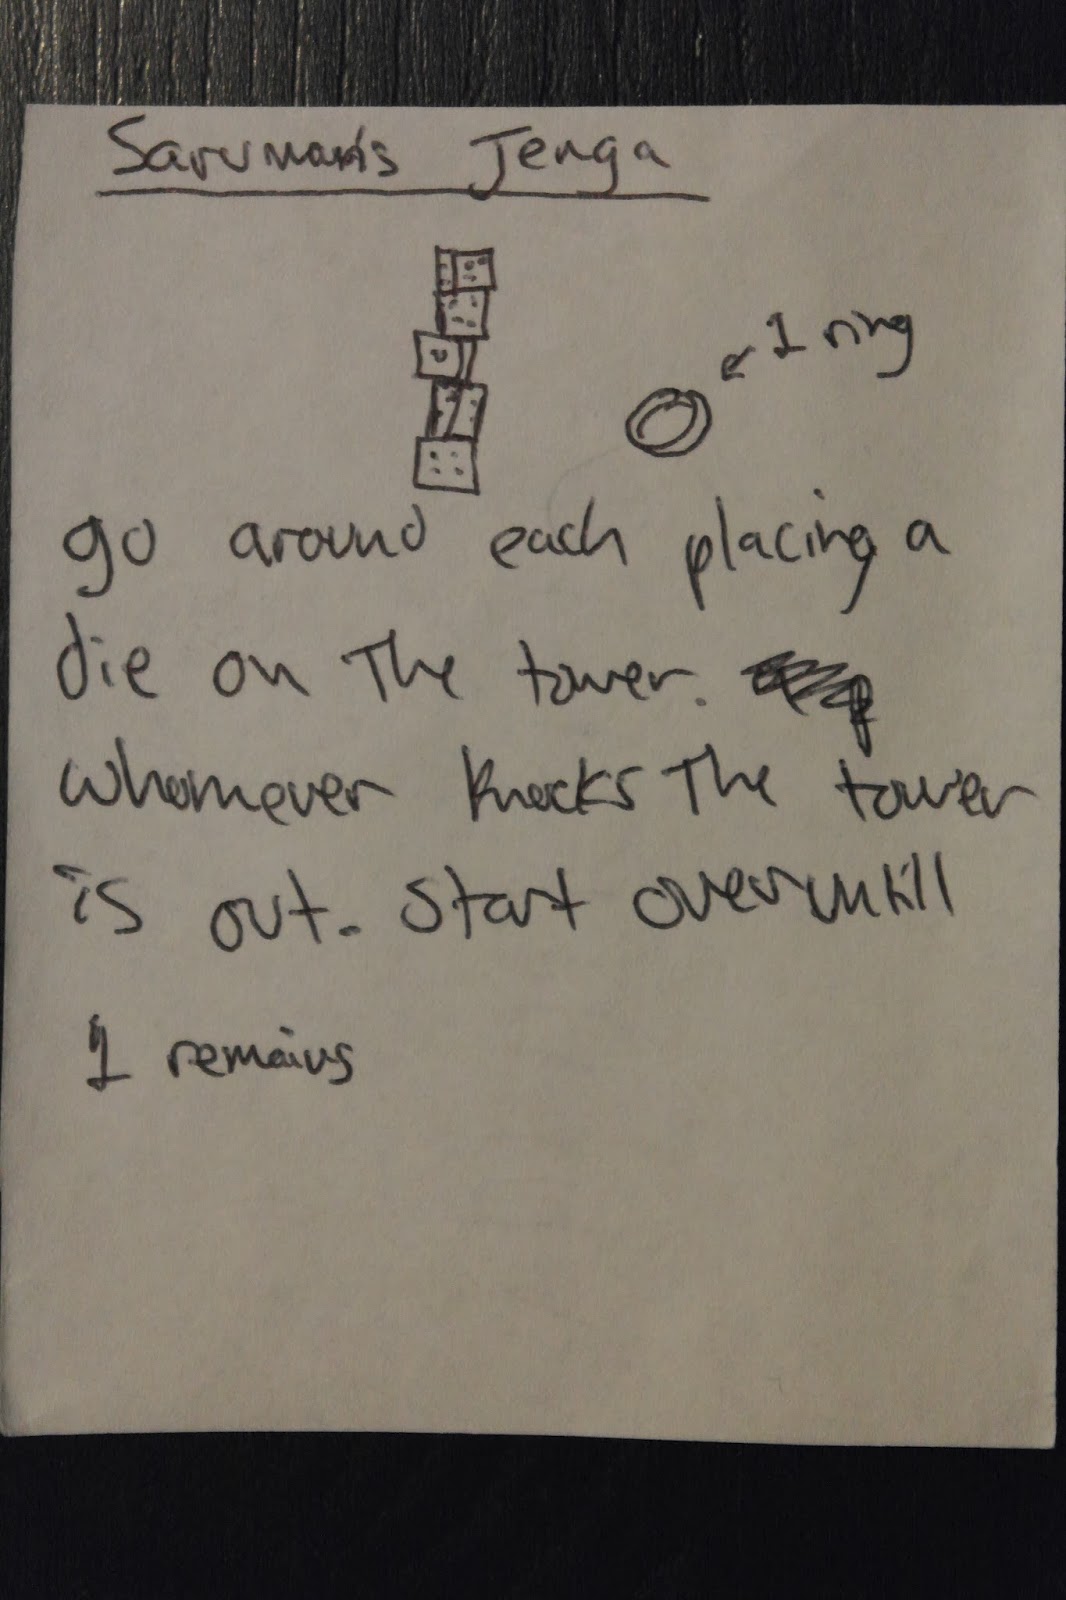 Saruman's Jenga
1 ring
go around each placing a
die on The tower.
whomever knocks The tower
is out. Start over untill
1 remains